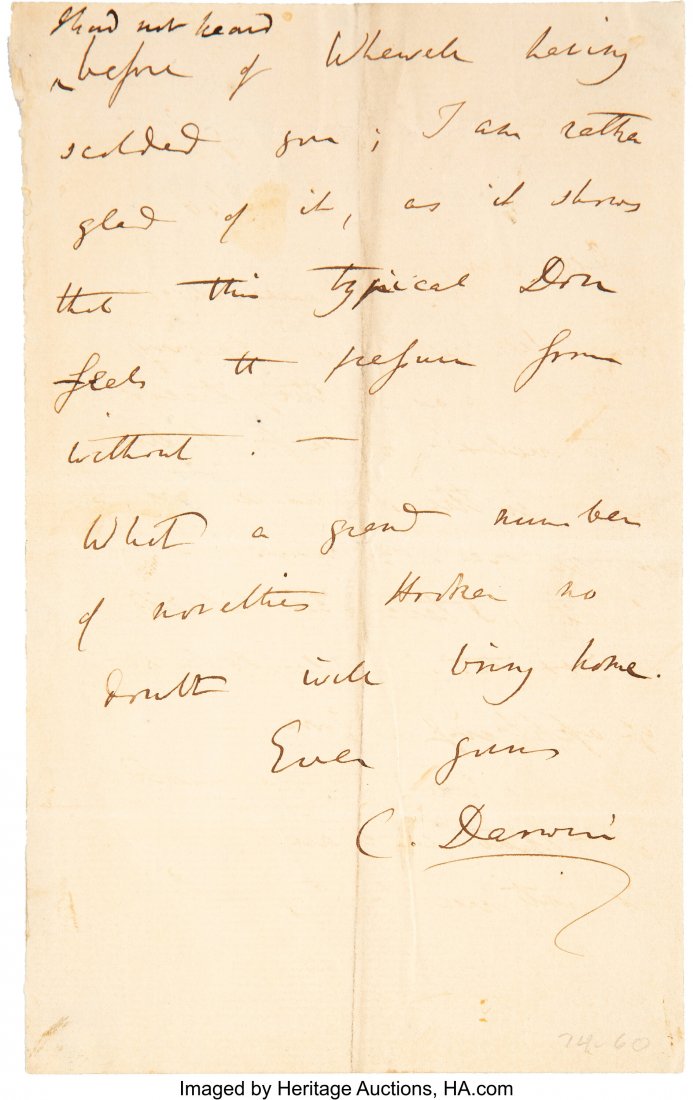 I had not heard
^ before of Whewell having
scolded you; I am rather
glad of it, as it shows
that this typical Don
feels the pressure from
without. —
What a grand number
of novelties Hooker no
doubt will bring home.
Ever yours
C. Darwin
74-60
Imaged by Heritage Auctions, HA.com